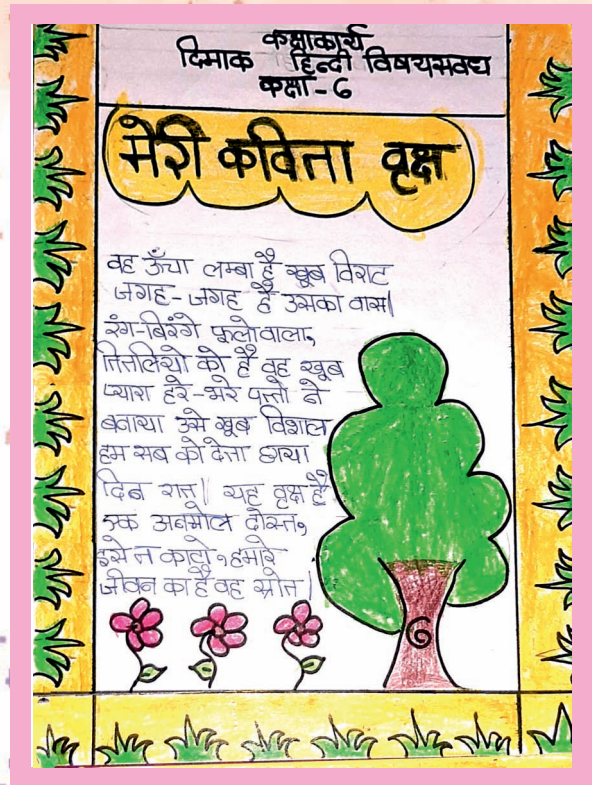 कक्षाकार्य
दिमाक हिन्दी विषयसवध
कक्षा-6
मेरी कविता वृक्ष
वह ऊँचा लम्बा है खूब विराट
जगह-जगह है उसका वास।
रंग-बिरंगे फूलोवाला,
तितलियो को है वह खूब
प्यारा हरे-भरे पत्तो ने
बनाया उसे खूब विशाल
हम सब को देता छाया
दिन रात। यह वृक्ष है
एक अनमोल दोस्त,
इसे न काटो, हमारे
जीवन का है वह स्रोत।